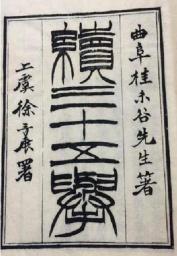 曲阜桂未谷先生著
續三十五舉
上虞徐三庚署